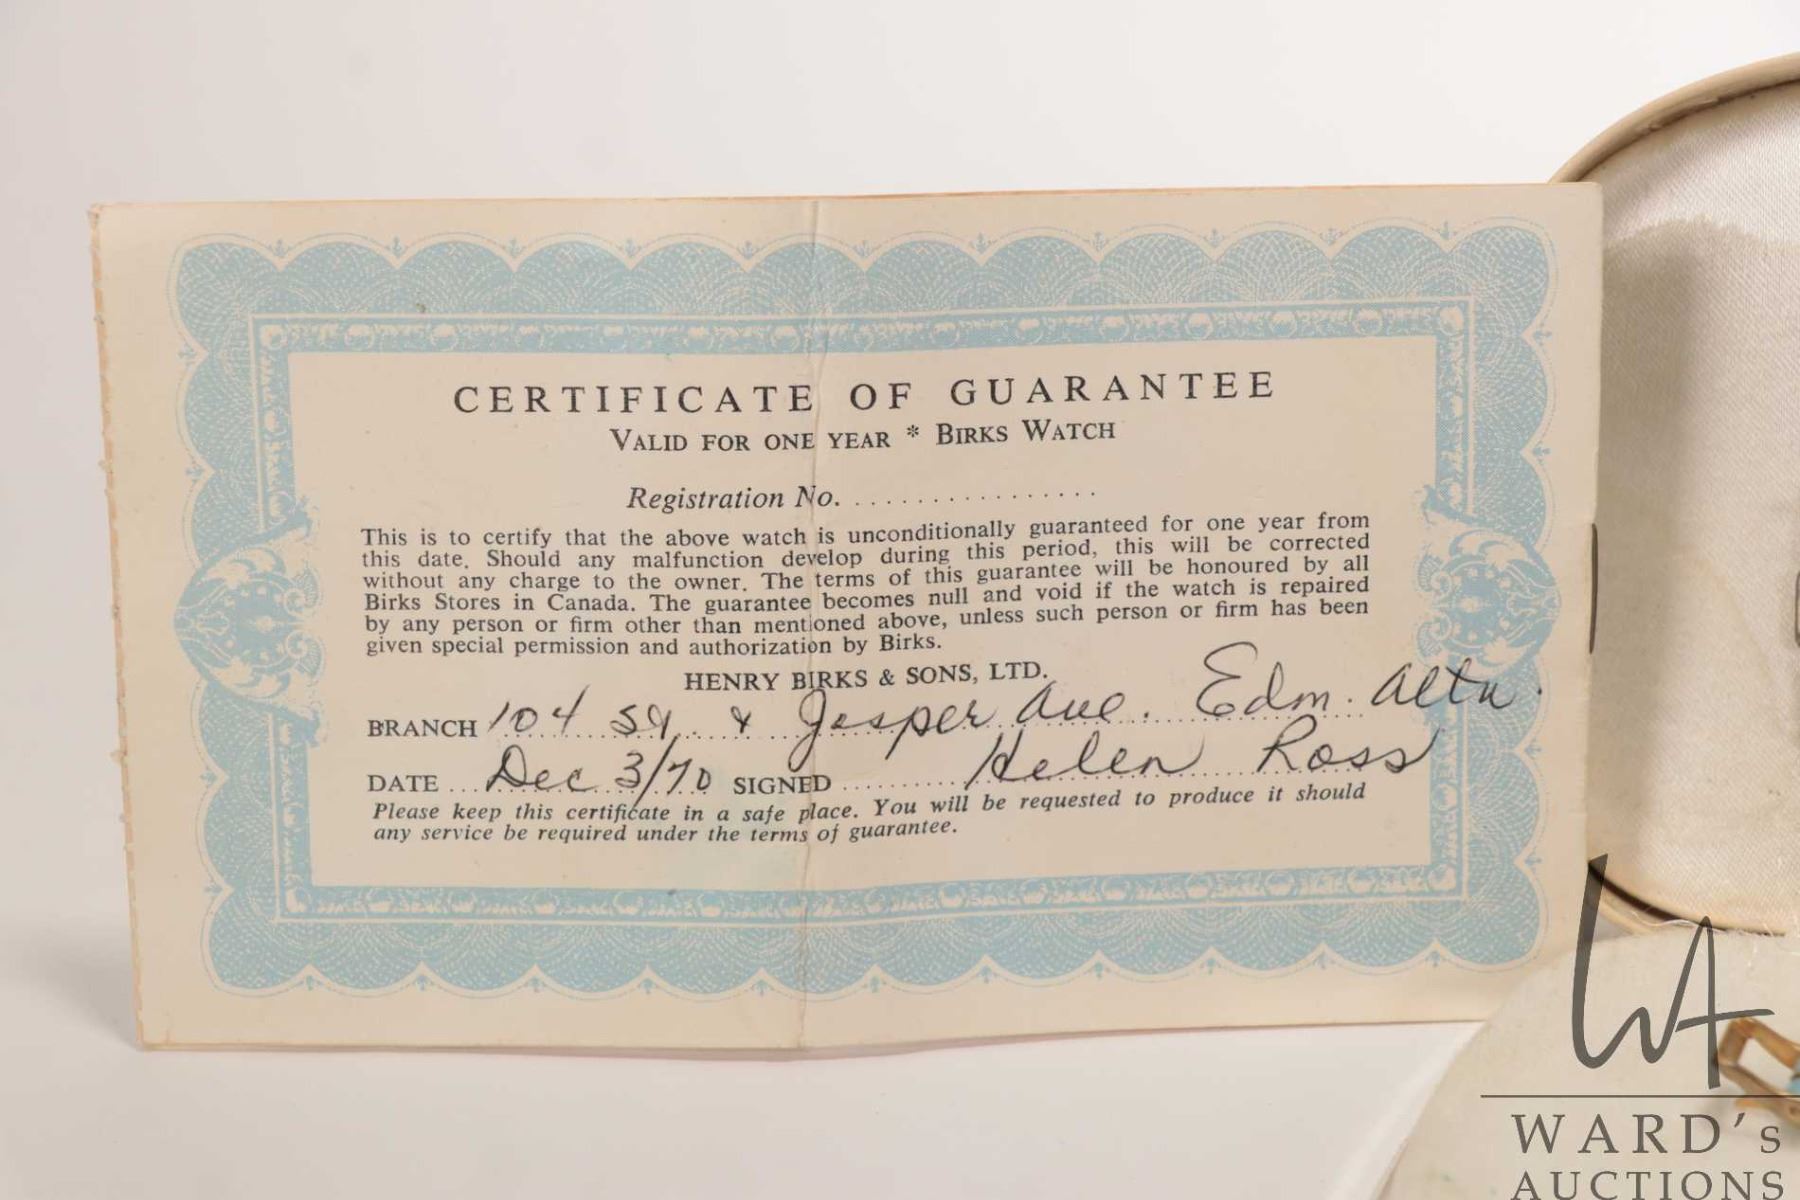 CERTIFICATE OF GUARANTEE
VALID FOR ONE YEAR * BIRKS WATCH
Registration No. .................
This is to certify that the above watch is unconditionally guaranteed for one year from
this date. Should any malfunction develop during this period, this will be corrected
without any charge to the owner. The terms of this guarantee will be honoured by all
Birks Stores in Canada. The guarantee becomes null and void if the watch is repaired
by any person or firm other than mentioned above, unless such person or firm has been
given special permission and authorization by Birks.
HENRY BIRKS & SONS, LTD.
BRANCH 104 St. & Jasper Ave. Edm. Alta.
DATE ... Dec 3/70 SIGNED .......... Helen Ross
Please keep this certificate in a safe place. You will be requested to produce it should
any service be required under the terms of guarantee.
WA
WARD's
AUCTIONS